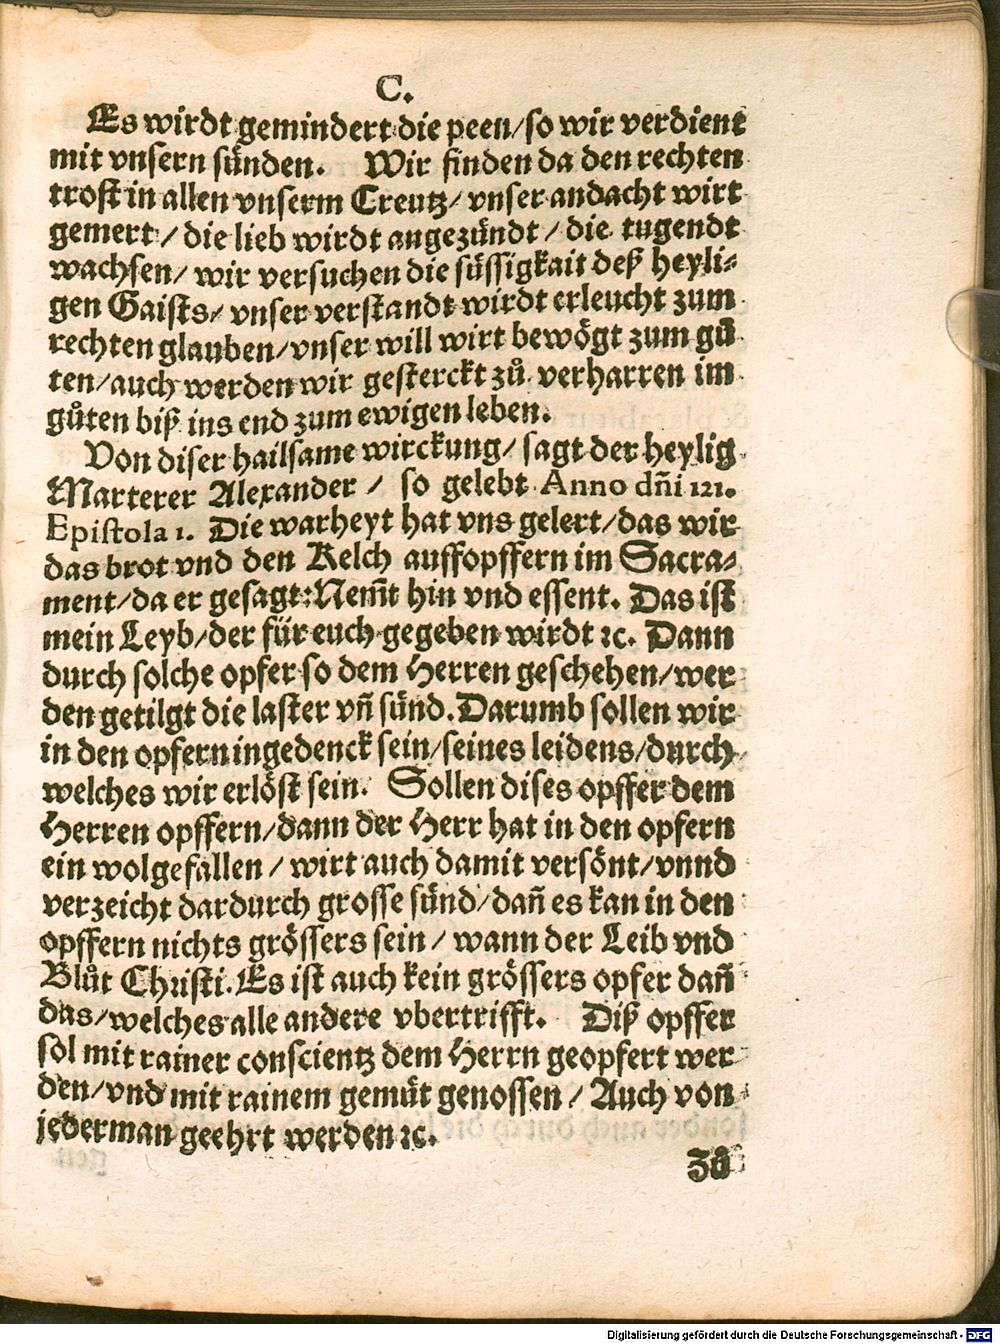 C.
Es wirdt gemindert die peen/ so wir verdient
mit vnsern sünden. Wir finden da den rechten
trost in allen vnserm Creutz/ vnser andacht wirt
gemert/ die lieb wirdt angezündt/ die tugendt
wachsen/ wir versuchen die süssigkait deß heyli-
gen Gaists/ vnser verstandt wirdt erleucht zum
rechten glauben/ vnser will wirt bewögt zum gů
ten/ auch werden wir gesterckt zů verharren im
gůten biß ins end zum ewigen leben.
Von diser hailsame wirckung/ sagt der heylig
Marterer Alexander / so gelebt Anno dñi 121.
Epistola 1. Die warheyt hat vns gelert/ das wir
das brot vnd den Kelch auffopffern im Sacra-
ment/ da er gesagt: Nem̃t hin vnd essent. Das ist
mein Leyb/ der für euch gegeben wirdt ꝛc. Dann
durch solche opfer so dem Herren geschehen/ wer
den getilgt die laster vñ sünd. Darumb sollen wir
in den opfern ingedenck sein/ seines leidens/ durch
welches wir erlöst sein. Sollen dises opffer dem
Herren opffern/ dann der Herr hat in den opfern
ein wolgefallen / wirt auch damit versönt/ vnnd
verzeicht dardurch grosse sünd/ dañ es kan in den
opffern nichts grössers sein / wann der Leib vnd
Blůt Christi. Es ist auch kein grössers opfer dañ
das/ welches alle andere vbertrifft. Diß opffer
sol mit rainer conscientz dem Herrn geopfert wer
den/ vnd mit rainem gemüt genossen / Auch von
jederman geehrt werden ꝛc.
Zů
Digitalisierung gefördert durch die Deutsche Forschungsgemeinschaft - DFG